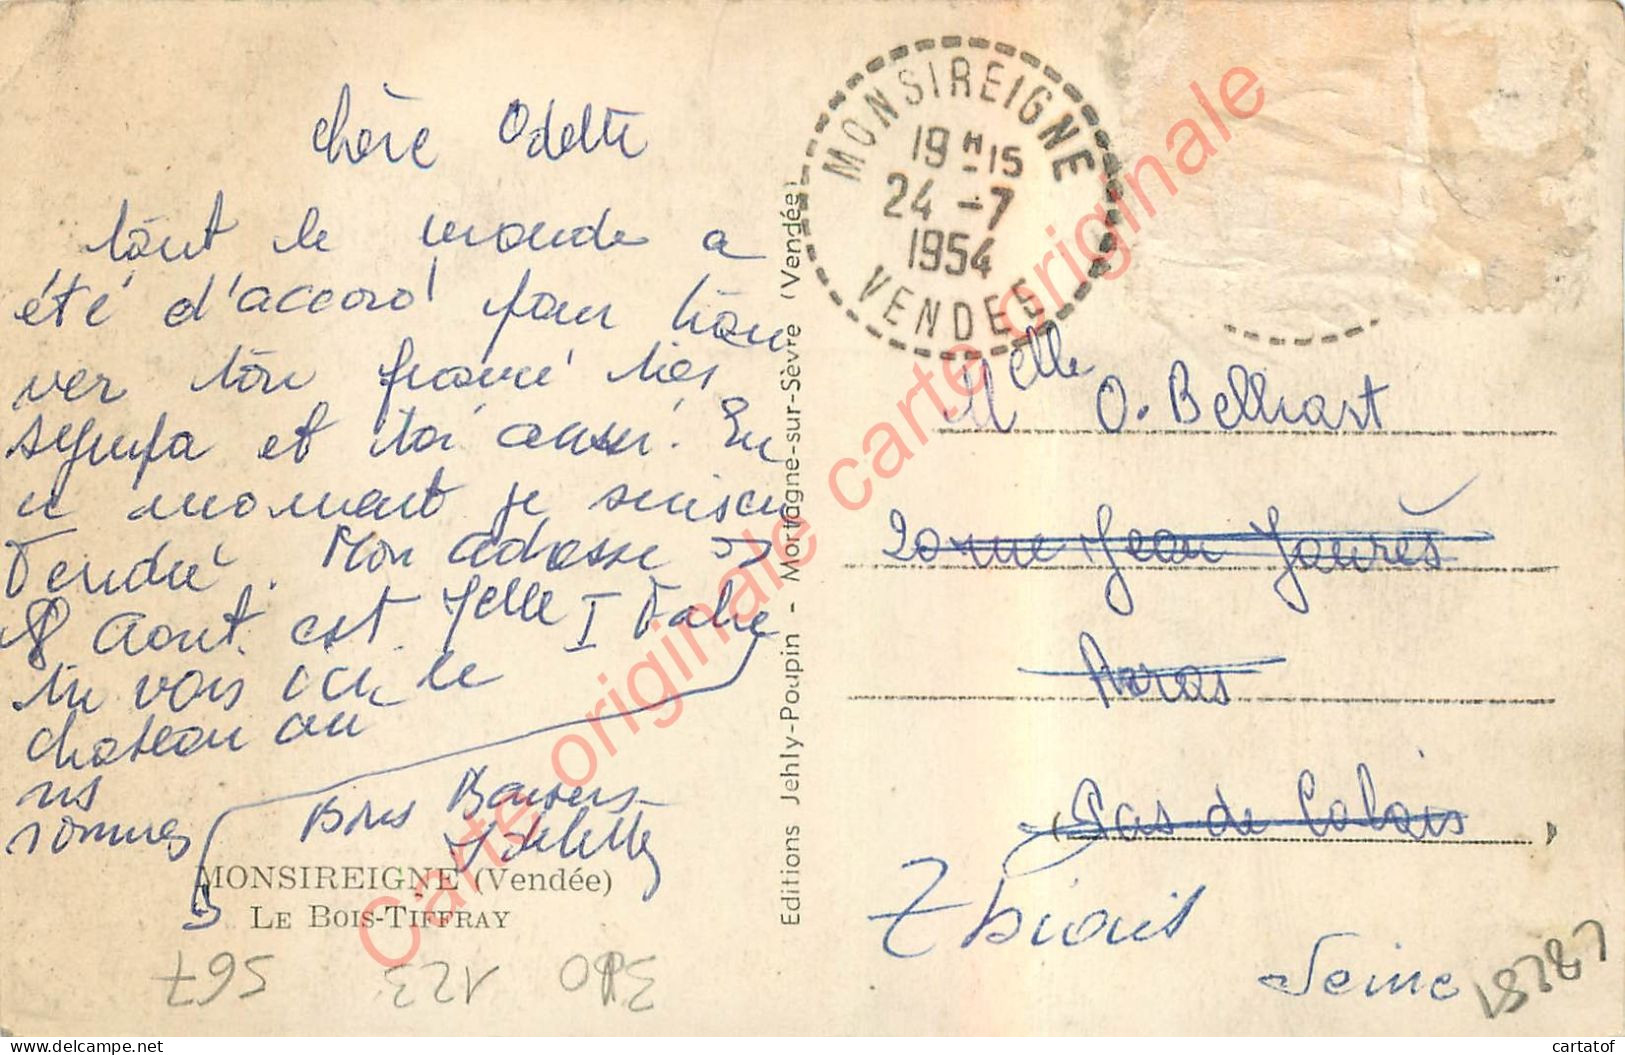 chère Odette
tout le monde a
été d'accord pour trou
ver ton fiancé très
sympa et toi aussi. En
ce moment je suis en
Vendée. Mon adresse
8 Aout est Melle I
tu vois ici le
chateau où
ns
sommes
Bons Baisers
MONSIREIGNE (Vendée)
LE BOIS-TIFFRAY
567 123 300
Editions Jehly-Poupin - Mortagne-sur-Sèvre (Vendée)
MONSIREIGNE
19 H 15
24 - 7
1954
VENDEE
Melle O. Belliart
20 rue Jean Jaurès
Arras
(Pas de Calais)
Thiais
Seine
18787
Carte originale carte originale
delcampe.net
cartatof